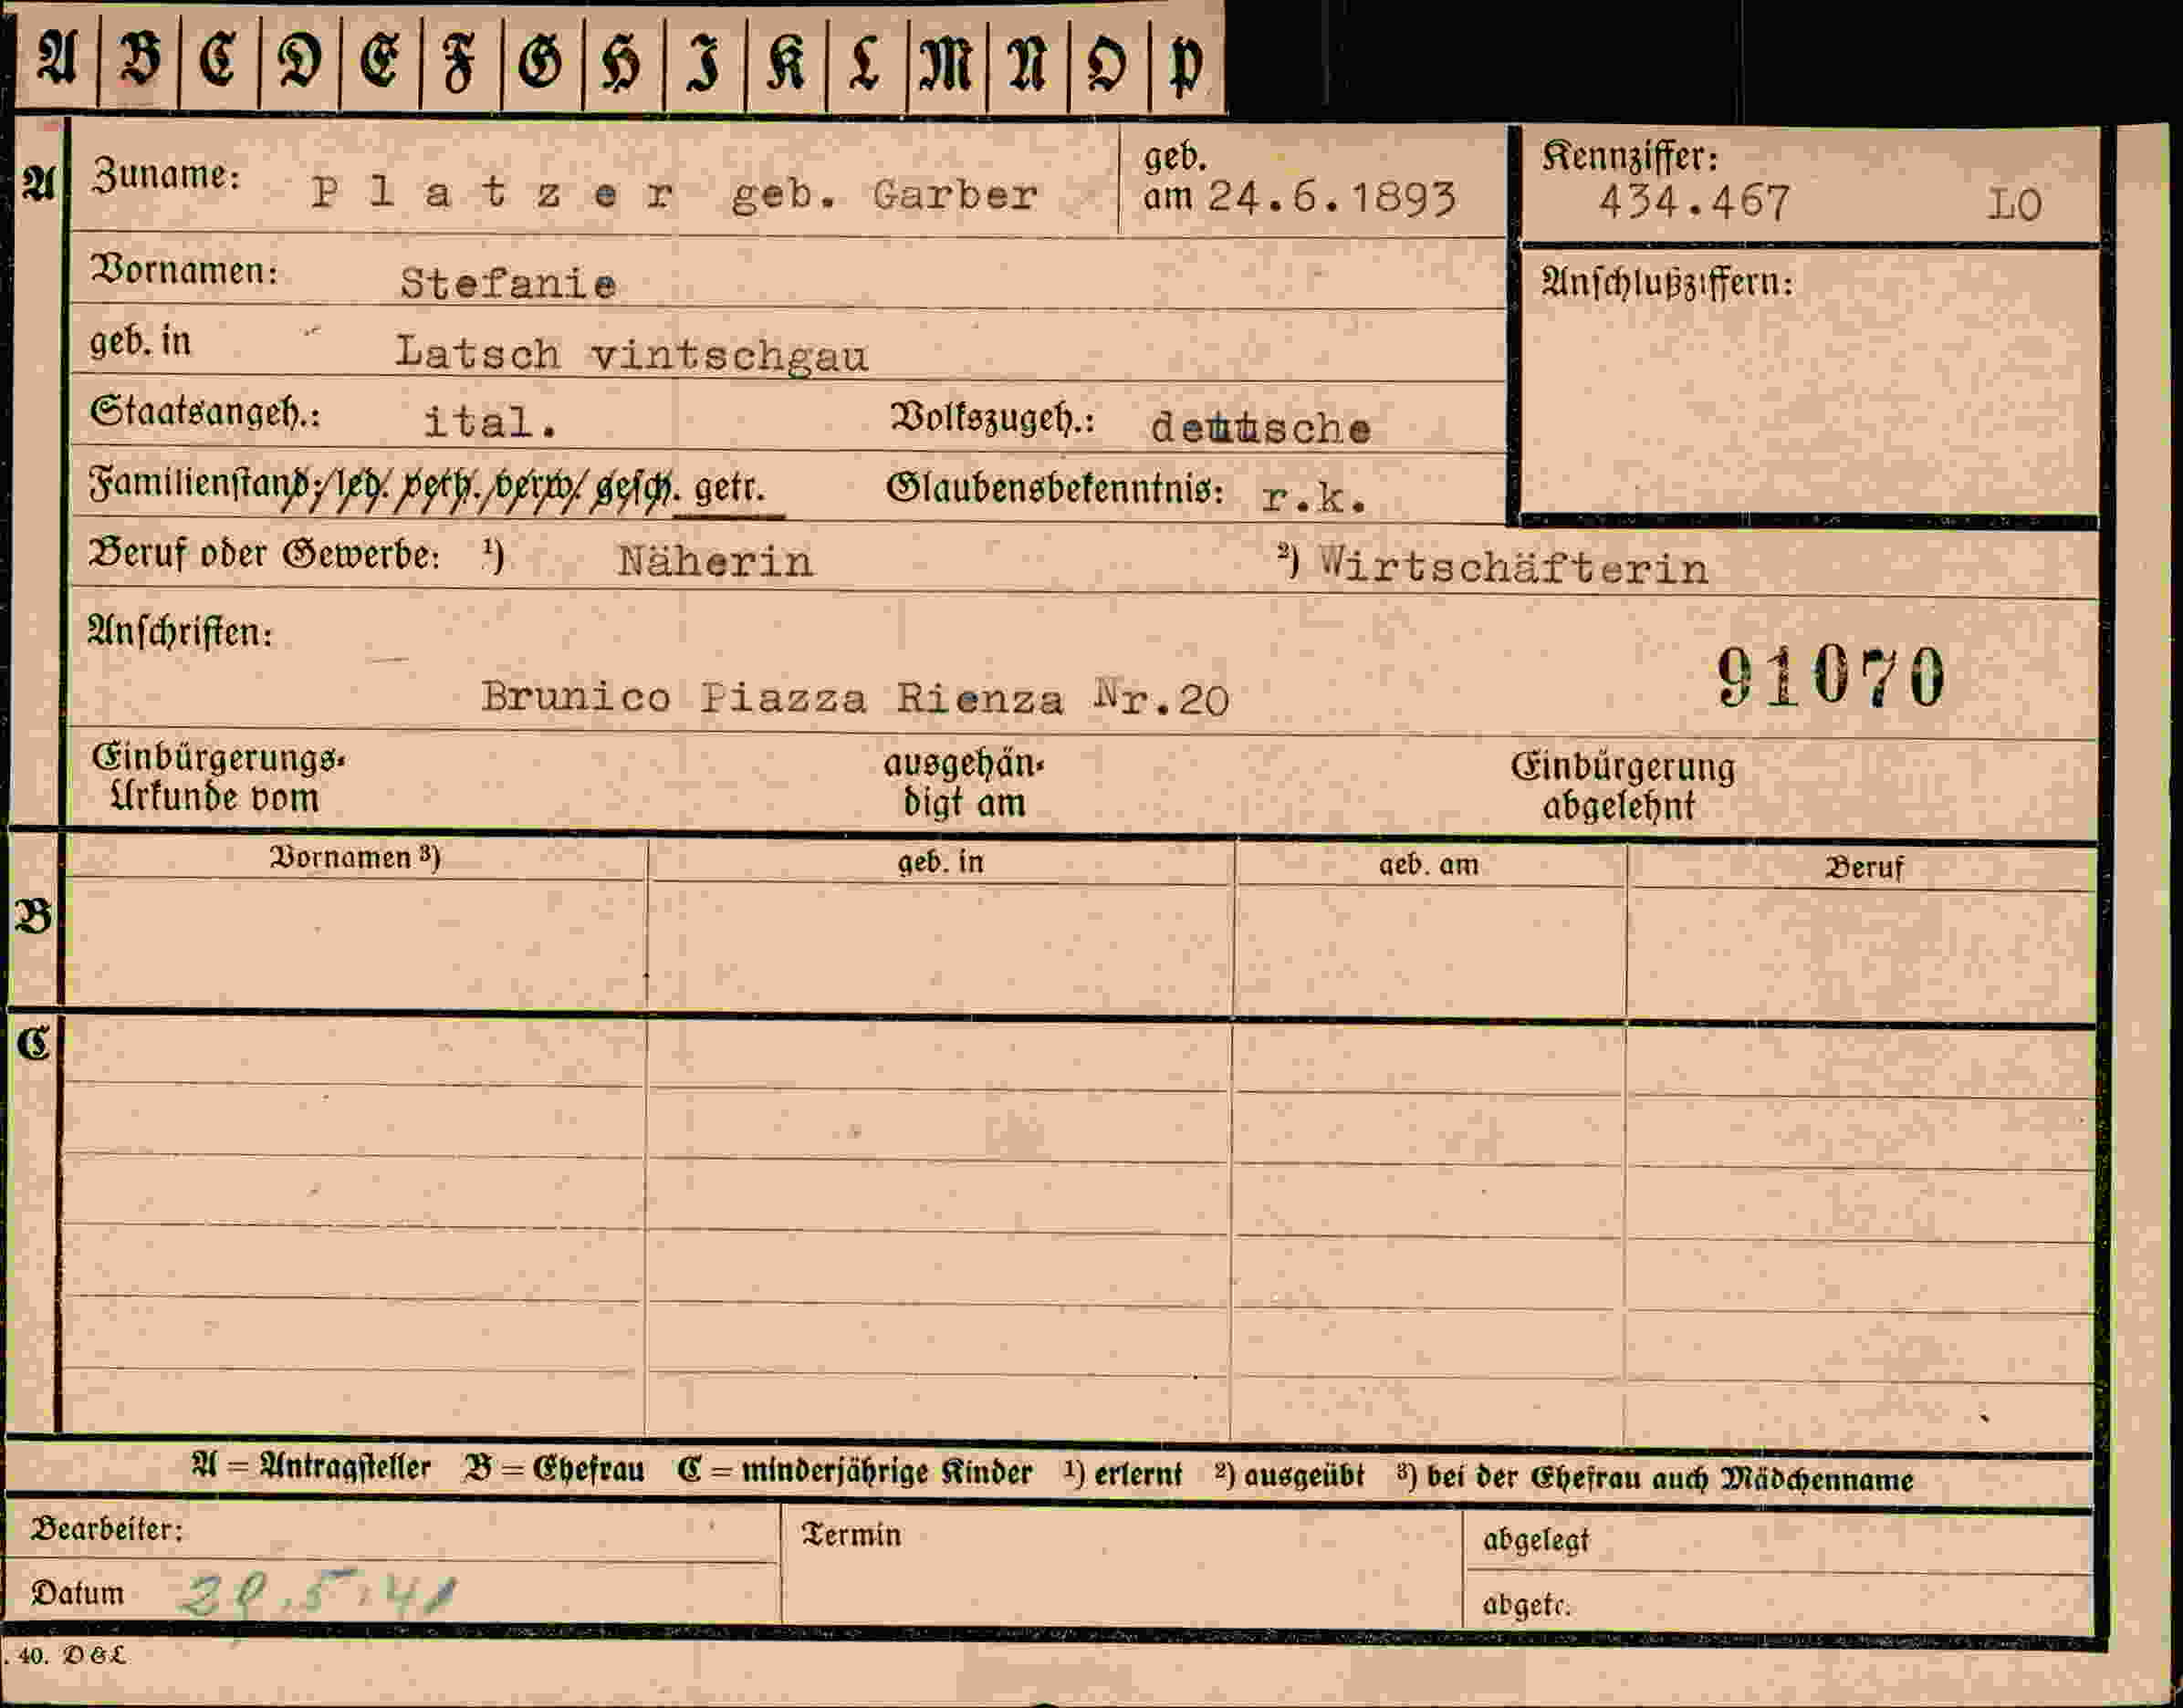 A B C D E F G H I K L M N O P
A Zuname: Platzer geb. Garber geb. am 24.6.1893 Kennziffer: 434.467 LO
Vornamen: Stefanie Anschlußziffern:
geb. in Latsch vintschgau
Staatsangeh.: ital. Volkszugeh.: deutsche
Familienstand: led. verh. verw. gesch. getr. Glaubensbekenntnis: r.k.
Beruf oder Gewerbe: ¹) Näherin ²) Wirtschäfterin
Anschriften:
91070
Brunico Piazza Rienza Nr.20
Einbürgerungs- ausgehän- Einbürgerung
Urkunde vom digt am abgelehnt
Vornamen ³) geb. in geb. am Beruf
B
C
A = Antragsteller B = Ehefrau C = minderjährige Kinder ¹) erlernt ²) ausgeübt ³) bei der Ehefrau auch Mädchenname
Bearbeiter: Termin abgelegt
Datum .5.41 abgetr.
. 40. D&L